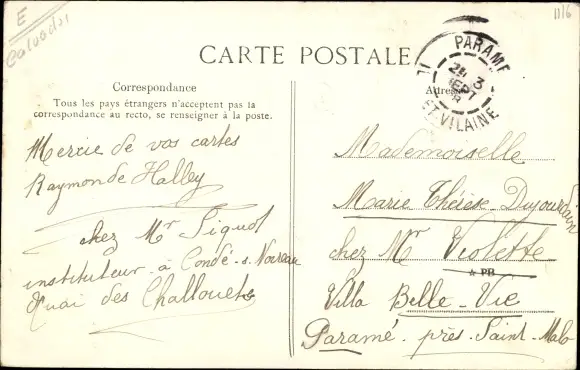 E
Calvados
1116
CARTE POSTALE
PARAMÉ
3
SEPT
ET-VILAINE
Correspondance
Tous les pays étrangers n'acceptent pas la
correspondance au recto, se renseigner à la poste.
Adresse
Mercie de vos cartes
Raymonde Halley
chez Mr Piquot
instituteur à Condé-s-Noireau
Quai des Challouets
Mademoiselle
Marie Thérèse Dujourdain
chez Mr Violette
★ PB
Villa Belle-Vie
Paramé près Saint-Malo